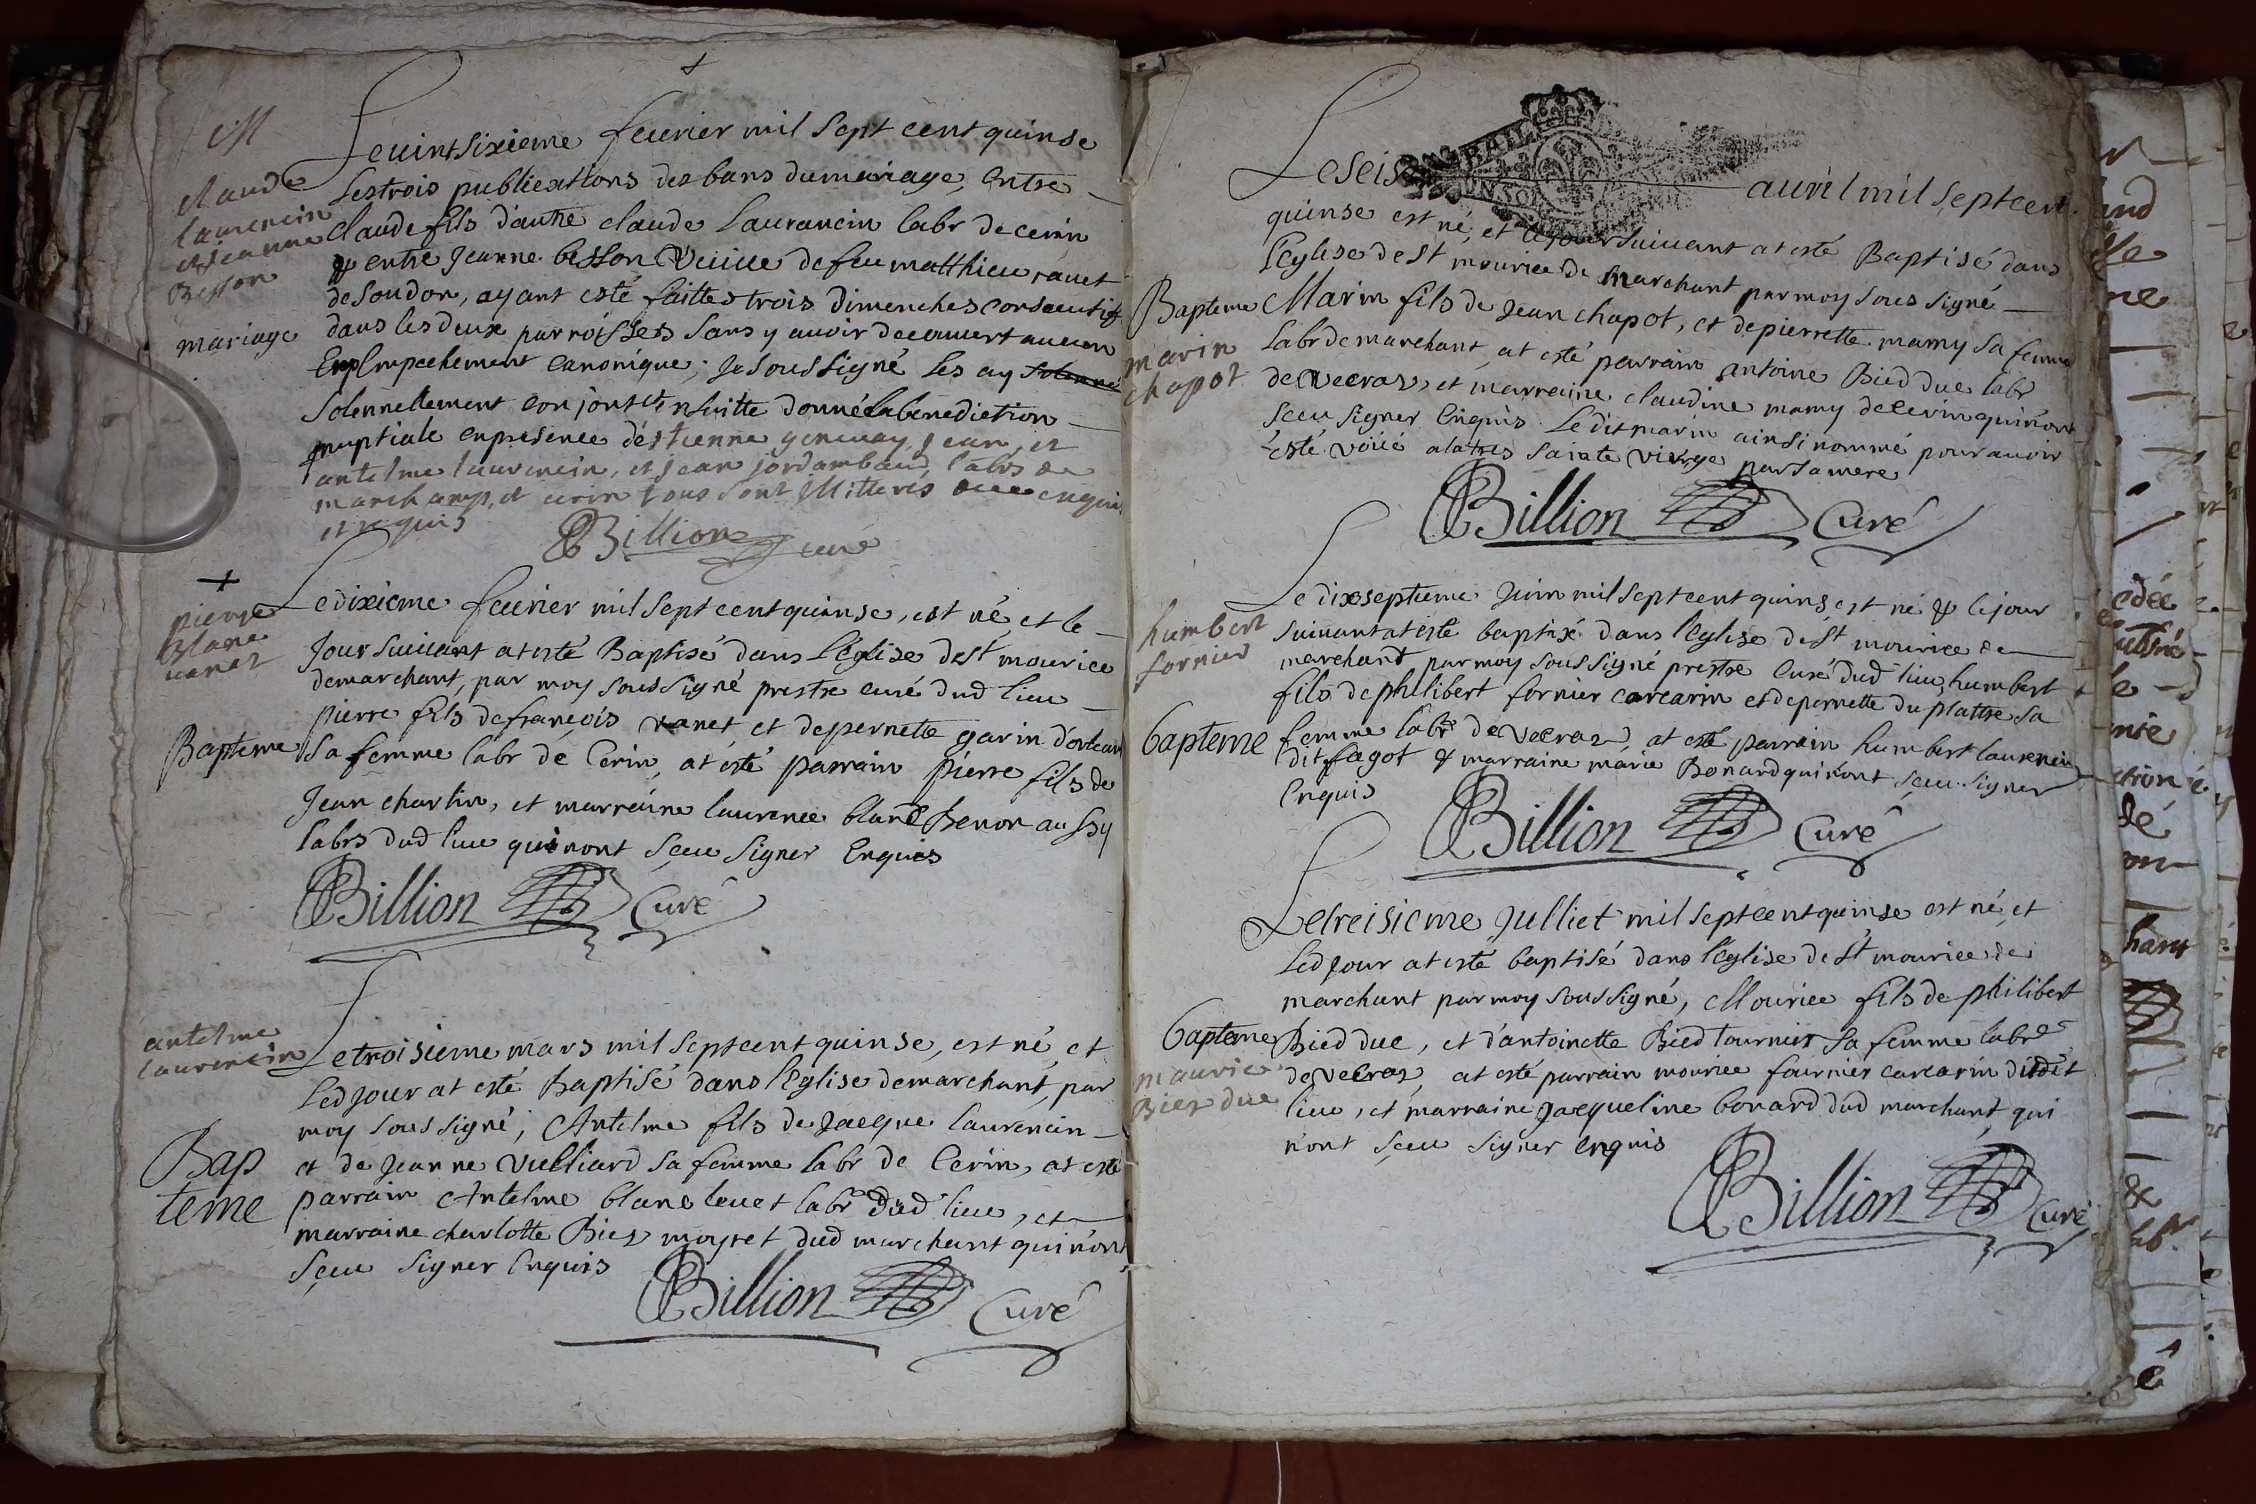 M
claude
laurencin
et jeanne
Besson
mariage
Le vint sixieme feurier mil sept cent quinse
Les trois publications des bans du mariage, entre
claude fils d'autre claude Laurancin labr de cerin
& entre Jeanne besson Veuue de feu matthieu rauet
de Soudon, ayant esté faittes trois dimenches consecutifs
dans les deux parroisses sans y auoir decouuert aucun
Empechement canonique; Je sous signé les ay
Solennellement conjoints Ensuitte donné la benediction
nuptiale en presence d'estienne geneuay, jean, et
antelme laurencin, et jean jordambaud labrs de
marchamp, et cerin tous sont Illiteres enquis
et requis
Billion curé
pierre
Blanc
uanez
Bapteme
Le dixieme feurier mil sept cent quinse, est né, et le
Jour suiuant at esté Baptisé dans l'Eglise de st mourice
de marchant, par moy sous signé prestre curé dud lieu
pierre fils de françois vanet et de pernette garin d'ortean
sa femme labr de Cerin, at esté parrain pierre fils de
Jean charlin, et marraine laurence blanc Benon aussy
labrs dud lieu qui n'ont sçeu signer Enquis
Billion Curé
antelme
laurencin
Bap
teme
Le troisieme mars mil sept cent quinse, est né, et
led jour at esté Baptisé dans l'Eglise de marchant, par
moy sous signé, Antelme fils de Jacque laurencin
et de Jeanne Vulliard sa femme labr de Cerin, at esté
parrain Antelme blanc leuet labr dud lieu, et
marraine charlotte Biez moyret dud marchant qui n'ont
sçeu signer Enquis
Billion Curé
Le seis auril mil sept cent
quinse est né, et le jour suiuant at esté Baptisé dans
l'Eglise de st mourice de marchant par moy sous signé
Bapteme
marin
chapot
Marin fils de Jean chapot, et de pierrette mamy sa femme
labr de marchant, at esté parrain antoine Bied duc labr
de Vecraz, et marraine claudine mamy de cerin qui n'ont
sceu signer Enquis Le dit marin ainsi nommé pour auoir
esté voüé a la tres sainte vierge par sa mere
Billion Curé
humbert
fornier
bapteme
Le dixseptieme Juin mil sept cent quinse est né & le jour
suiuant at esté baptisé dans l'Eglise de st mourice de
marchant par moy sous signé prestre Curé dud lieu, humbert
fils de philibert fornier carcarin et de pernette du plattre sa
femme labr de Vecraz, at esté parrain humbert laurencin
dit fagot & marraine marie Bonard qui n'ont sçeu signer
Enquis
Billion Curé
Le treisieme Julliet mil sept cent quinse est né, et
led jour at esté baptisé dans l'Eglise de st mourice de
marchant par moy sous signé, Mourice fils de philibert
bapteme
maurice
Biez duc
Bied duc, et d'antoinette Bied tournier sa femme labr
de Vecraz, at esté parrain mourice fournier carcarin dudit
lieu, et marraine Jacqueline bonard dud marchant qui
n'ont sçeu signer enquis
Billion Curé